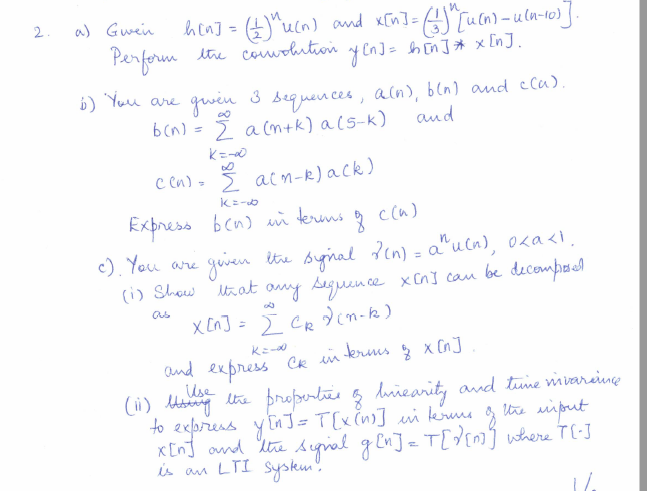 2. a) Given h[n] = (1/2)^n u(n) and x[n] = (1/3)^n [u(n) – u(n-10)].
Perform the convolution y[n] = h[n] * x[n].
b) You are given 3 sequences, a(n), b(n) and c(n).
b(n) = ∑_{k=-∞}^{∞} a(n+k) a(5-k) and
c(n) = ∑_{k=-∞}^{∞} a(n-k) a(k)
Express b(n) in terms of c(n)
c). You are given the signal γ(n) = a^n u(n), 0<a<1.
(i) Show that any sequence x[n] can be decomposed
as
x[n] = ∑_{k=-∞}^{∞} c_k γ(n-k)
and express c_k in terms of x[n].
(ii) Use the properties of linearity and time invariance
to express y[n] = T[x(n)] in terms of the input
x[n] and the signal g[n] = T[γ[n]] where T[·]
is an LTI system.